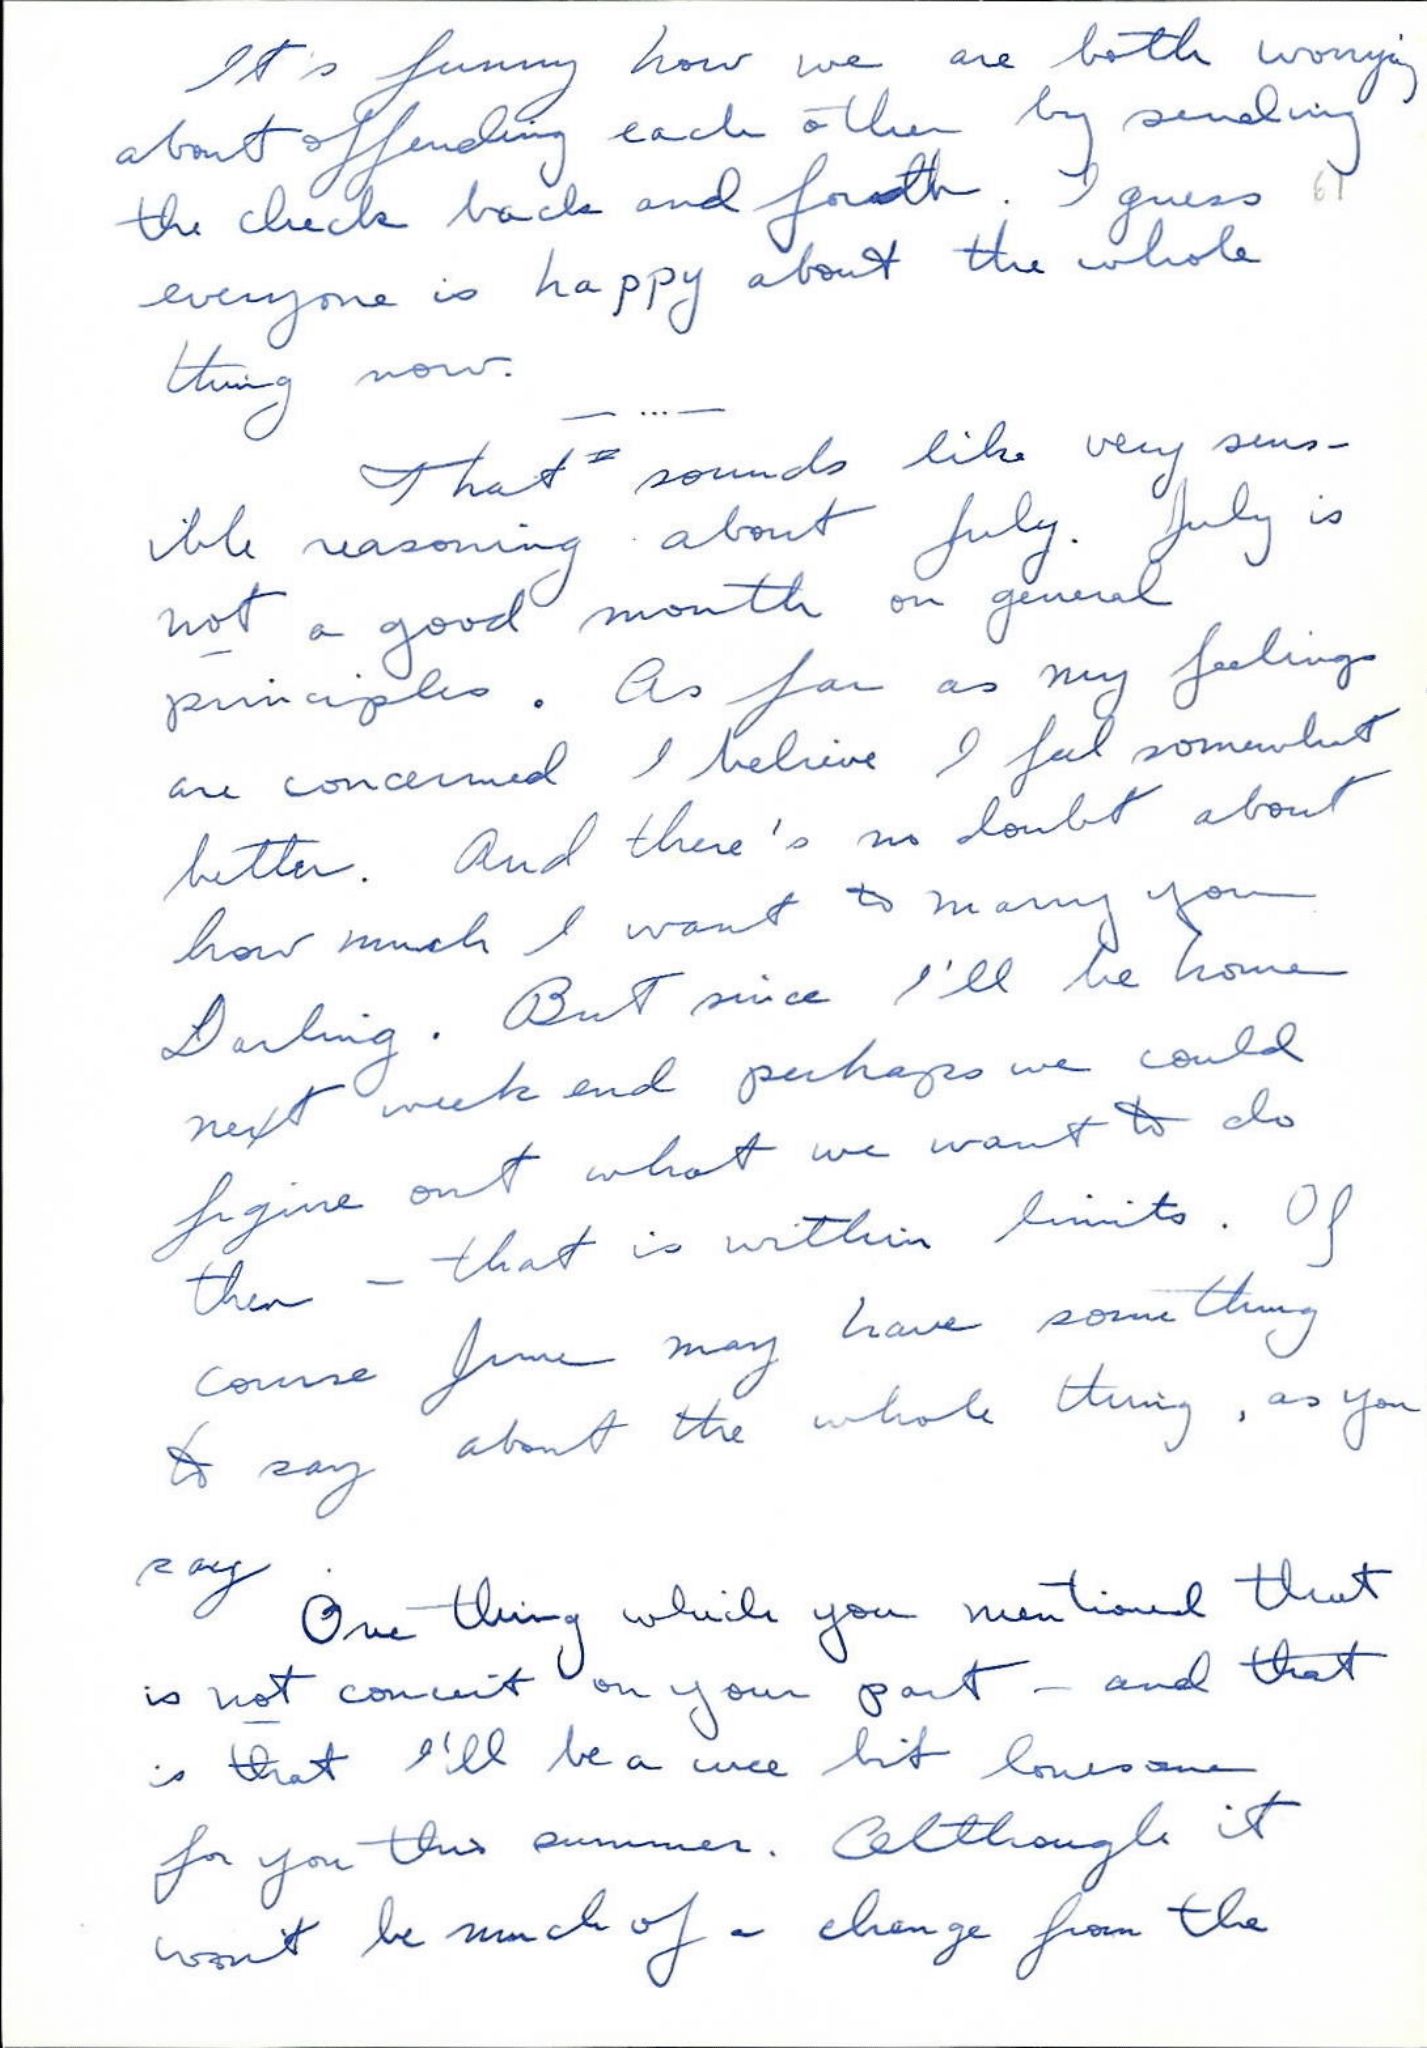 It's funny how we are both worrying
about offending each other by sending
the check back and forth. I guess
61
everyone is happy about the whole
thing now.
— ... —
That sounds like very sens-
ible reasoning about July. July is
not a good month on general
principles. As far as my feelings
are concerned I believe I feel somewhat
better. And there's no doubt about
how much I want to marry you
Darling. But since I'll be home
next week end perhaps we could
figure out what we want to do
then – that is within limits. Of
course June may have something
to say about the whole thing, as you
say.
One thing which you mentioned that
is not conceit on your part – and that
is that I'll be a wee bit lonesome
for you this summer. Although it
won't be much of a change from the